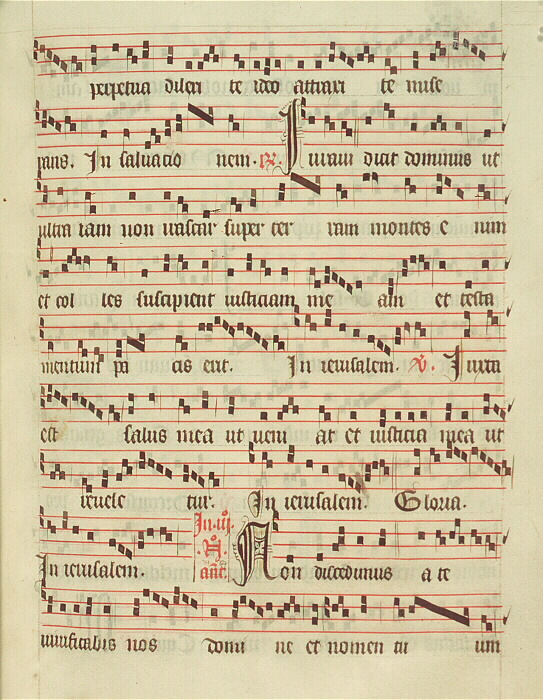 perpetua dilexi te ideo attraxi te mise
rans. In saluacio nem. R. Iuraui dicit dominus ut
ultra iam non irascar super ter ram montes e nim
et col les suscipient iusticiam me am et testa
mentum pa cis erit. In ierusalem. V. Iuxta
est salus mea ut veni at et iusticia mea ut
reuele tur. In ierusalem. Gloria.
In ierusalem. Non discedimus a te
uiuificabis nos domi ne et nomen tu um